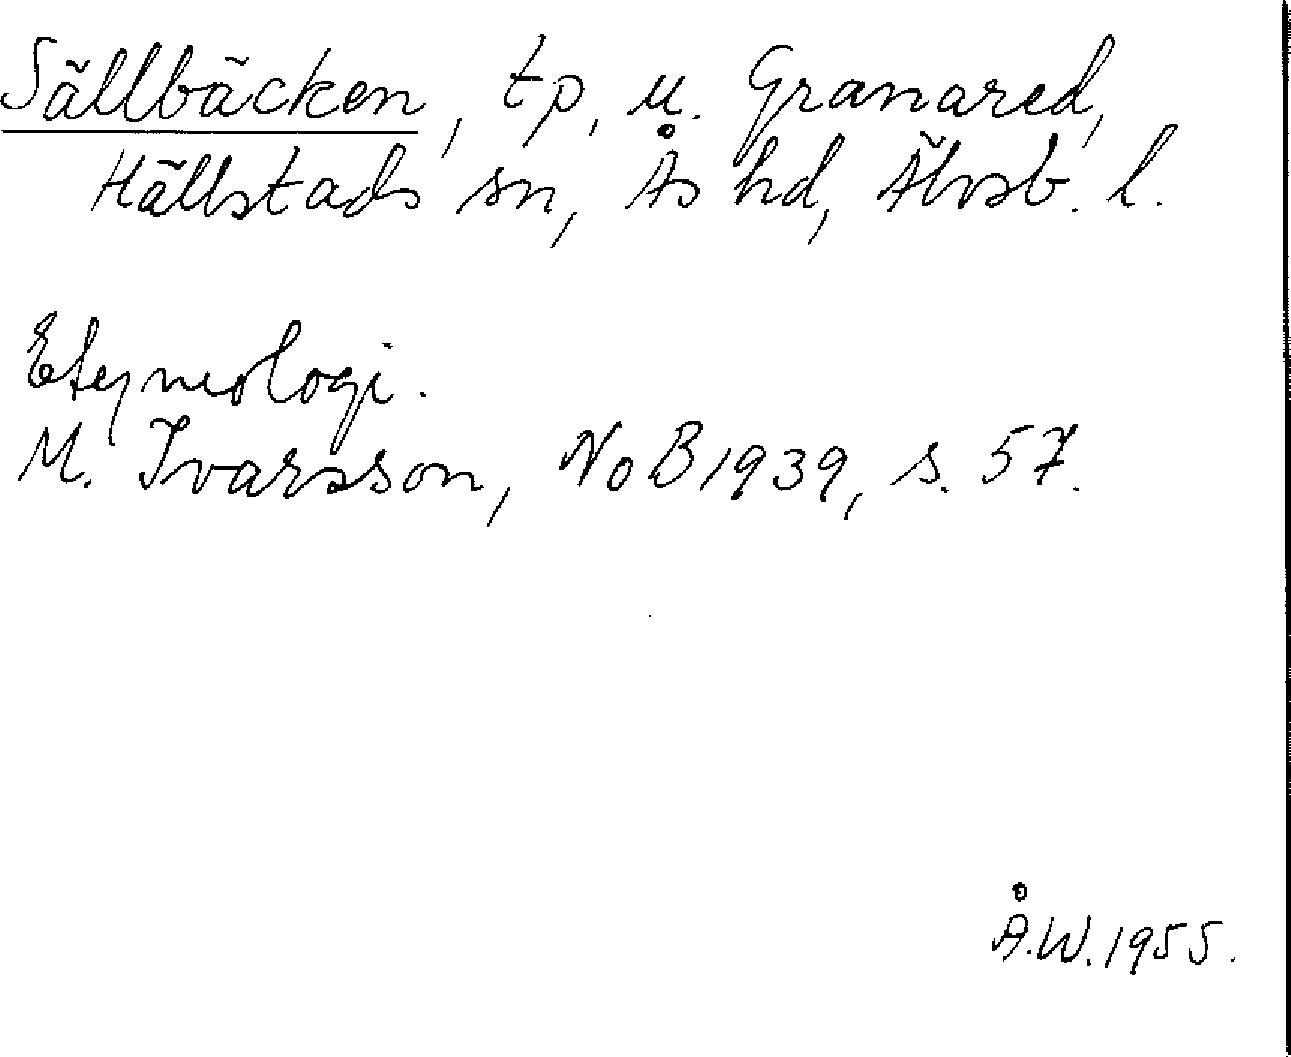 Sällbäcken, tp, u. Granared,
Hällstads sn, Ås hd, Älvsb. l.
Etymologi.
M. Ivarsson, NoB 1939, s. 57.
Å.W. 1955.